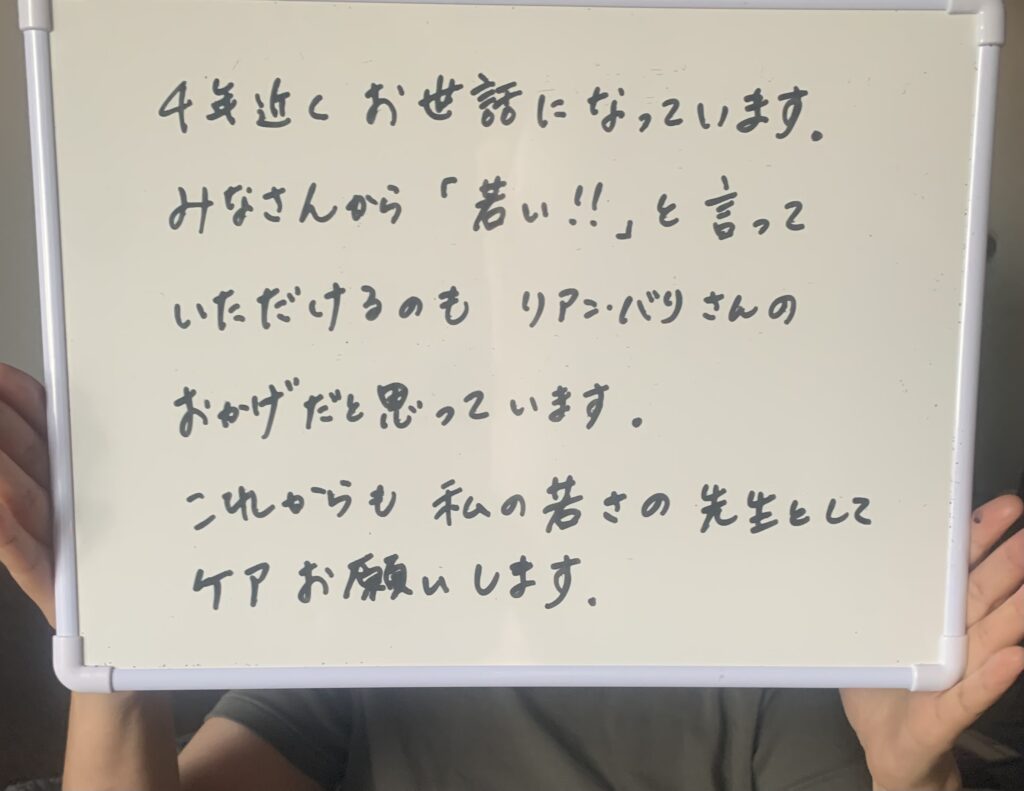 4年近く お世話になっています。
みなさんから「若い!!」と言って
いただけるのも リアン・バリさんの
おかげだと思っています。
これからも 私の若さの先生として
ケアお願いします。